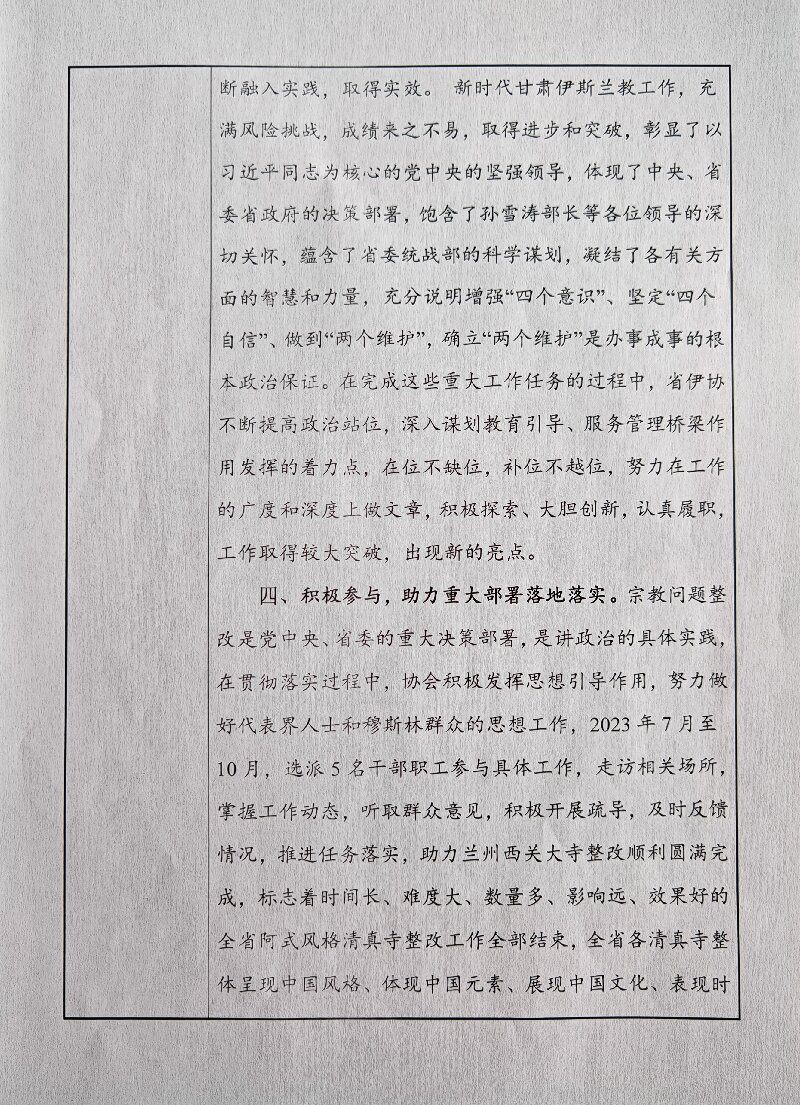 断融入实践，取得实效。 新时代甘肃伊斯兰教工作，充
满风险挑战，成绩来之不易，取得进步和突破，彰显了以
习近平同志为核心的党中央的坚强领导，体现了中央、省
委省政府的决策部署，饱含了孙雪涛部长等各位领导的深
切关怀，蕴含了省委统战部的科学谋划，凝结了各有关方
面的智慧和力量，充分说明增强“四个意识”、坚定“四个
自信”、做到“两个维护”，确立“两个维护”是办事成事的根
本政治保证。在完成这些重大工作任务的过程中，省伊协
不断提高政治站位，深入谋划教育引导、服务管理桥梁作
用发挥的着力点，在位不缺位，补位不越位，努力在工作
的广度和深度上做文章，积极探索、大胆创新，认真履职，
工作取得较大突破，出现新的亮点。
四、积极参与，助力重大部署落地落实。宗教问题整
改是党中央、省委的重大决策部署，是讲政治的具体实践，
在贯彻落实过程中，协会积极发挥思想引导作用，努力做
好代表界人士和穆斯林群众的思想工作，2023 年 7 月至
10 月，选派 5 名干部职工参与具体工作，走访相关场所，
掌握工作动态，听取群众意见，积极开展疏导，及时反馈
情况，推进任务落实，助力兰州西关大寺整改顺利圆满完
成，标志着时间长、难度大、数量多、影响远、效果好的
全省阿式风格清真寺整改工作全部结束，全省各清真寺整
体呈现中国风格、体现中国元素、展现中国文化、表现时